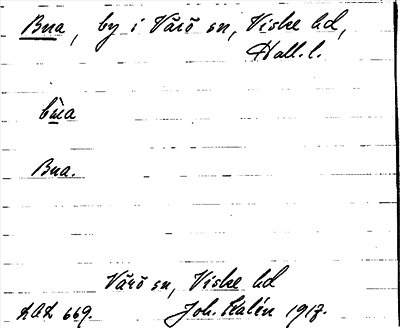 Bua, by i Värö sn, Viske hd,
Hall. l.
bùa
Bua.
Värö sn, Viske hd
LAL 669.
Joh. Kalén 1917.